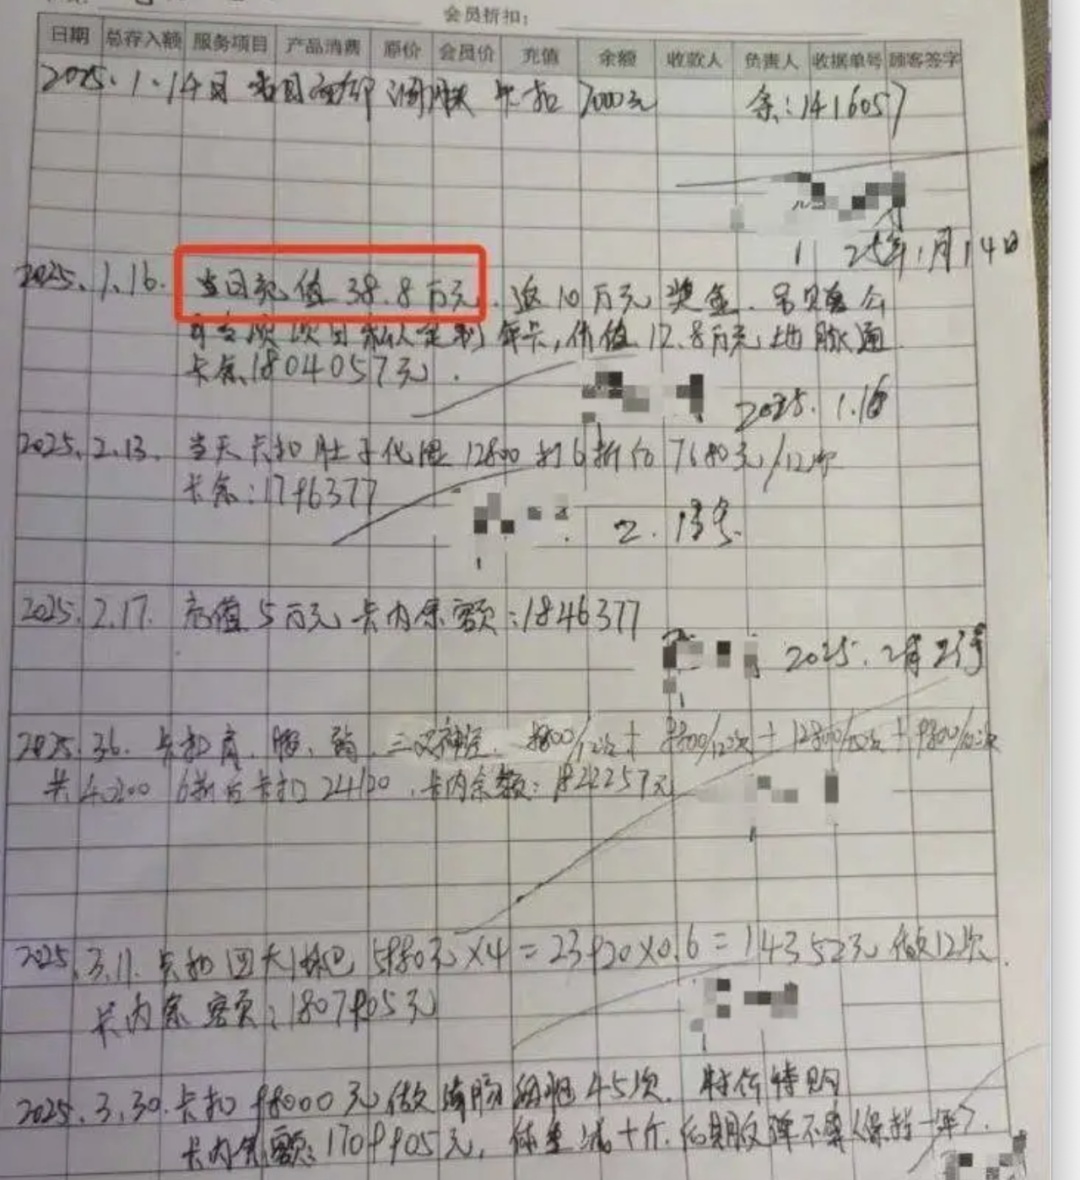 会员折扣：
日期 总存入额 服务项目 产品消费 原价 会员价 充值 余额 收款人 负责人 收据单号 顾客签字
2025.1.14日 当日 调 卡扣 7000元 余：1416057
25年1月14日
2025.1.16. 当日充值 38.8万元. 返10万元奖金.
项目私人定制年卡，价值12.8万元
卡余1804057元.
2025.1.16
2025.2.13. 当天卡扣肚子化湿 12800 打6折后7680元/12次
卡余：1796377
2.13号
2025.2.17. 充值5万元 卡内余额：1846377
2025.2月
2025.3.6. 卡扣 9800/12次 + 12800/ + 9800/
共40200 6折后卡扣24120，卡内余额：1822257元
2025.3.11. 卡扣四大淋巴 5980元×4=23920×0.6=14352元 做12次.
卡内余额：1807905元
2025.3.30.卡扣98000元做 45次.
卡内余额：1709905元，体重减十斤.后期反弹不算(保持一年).